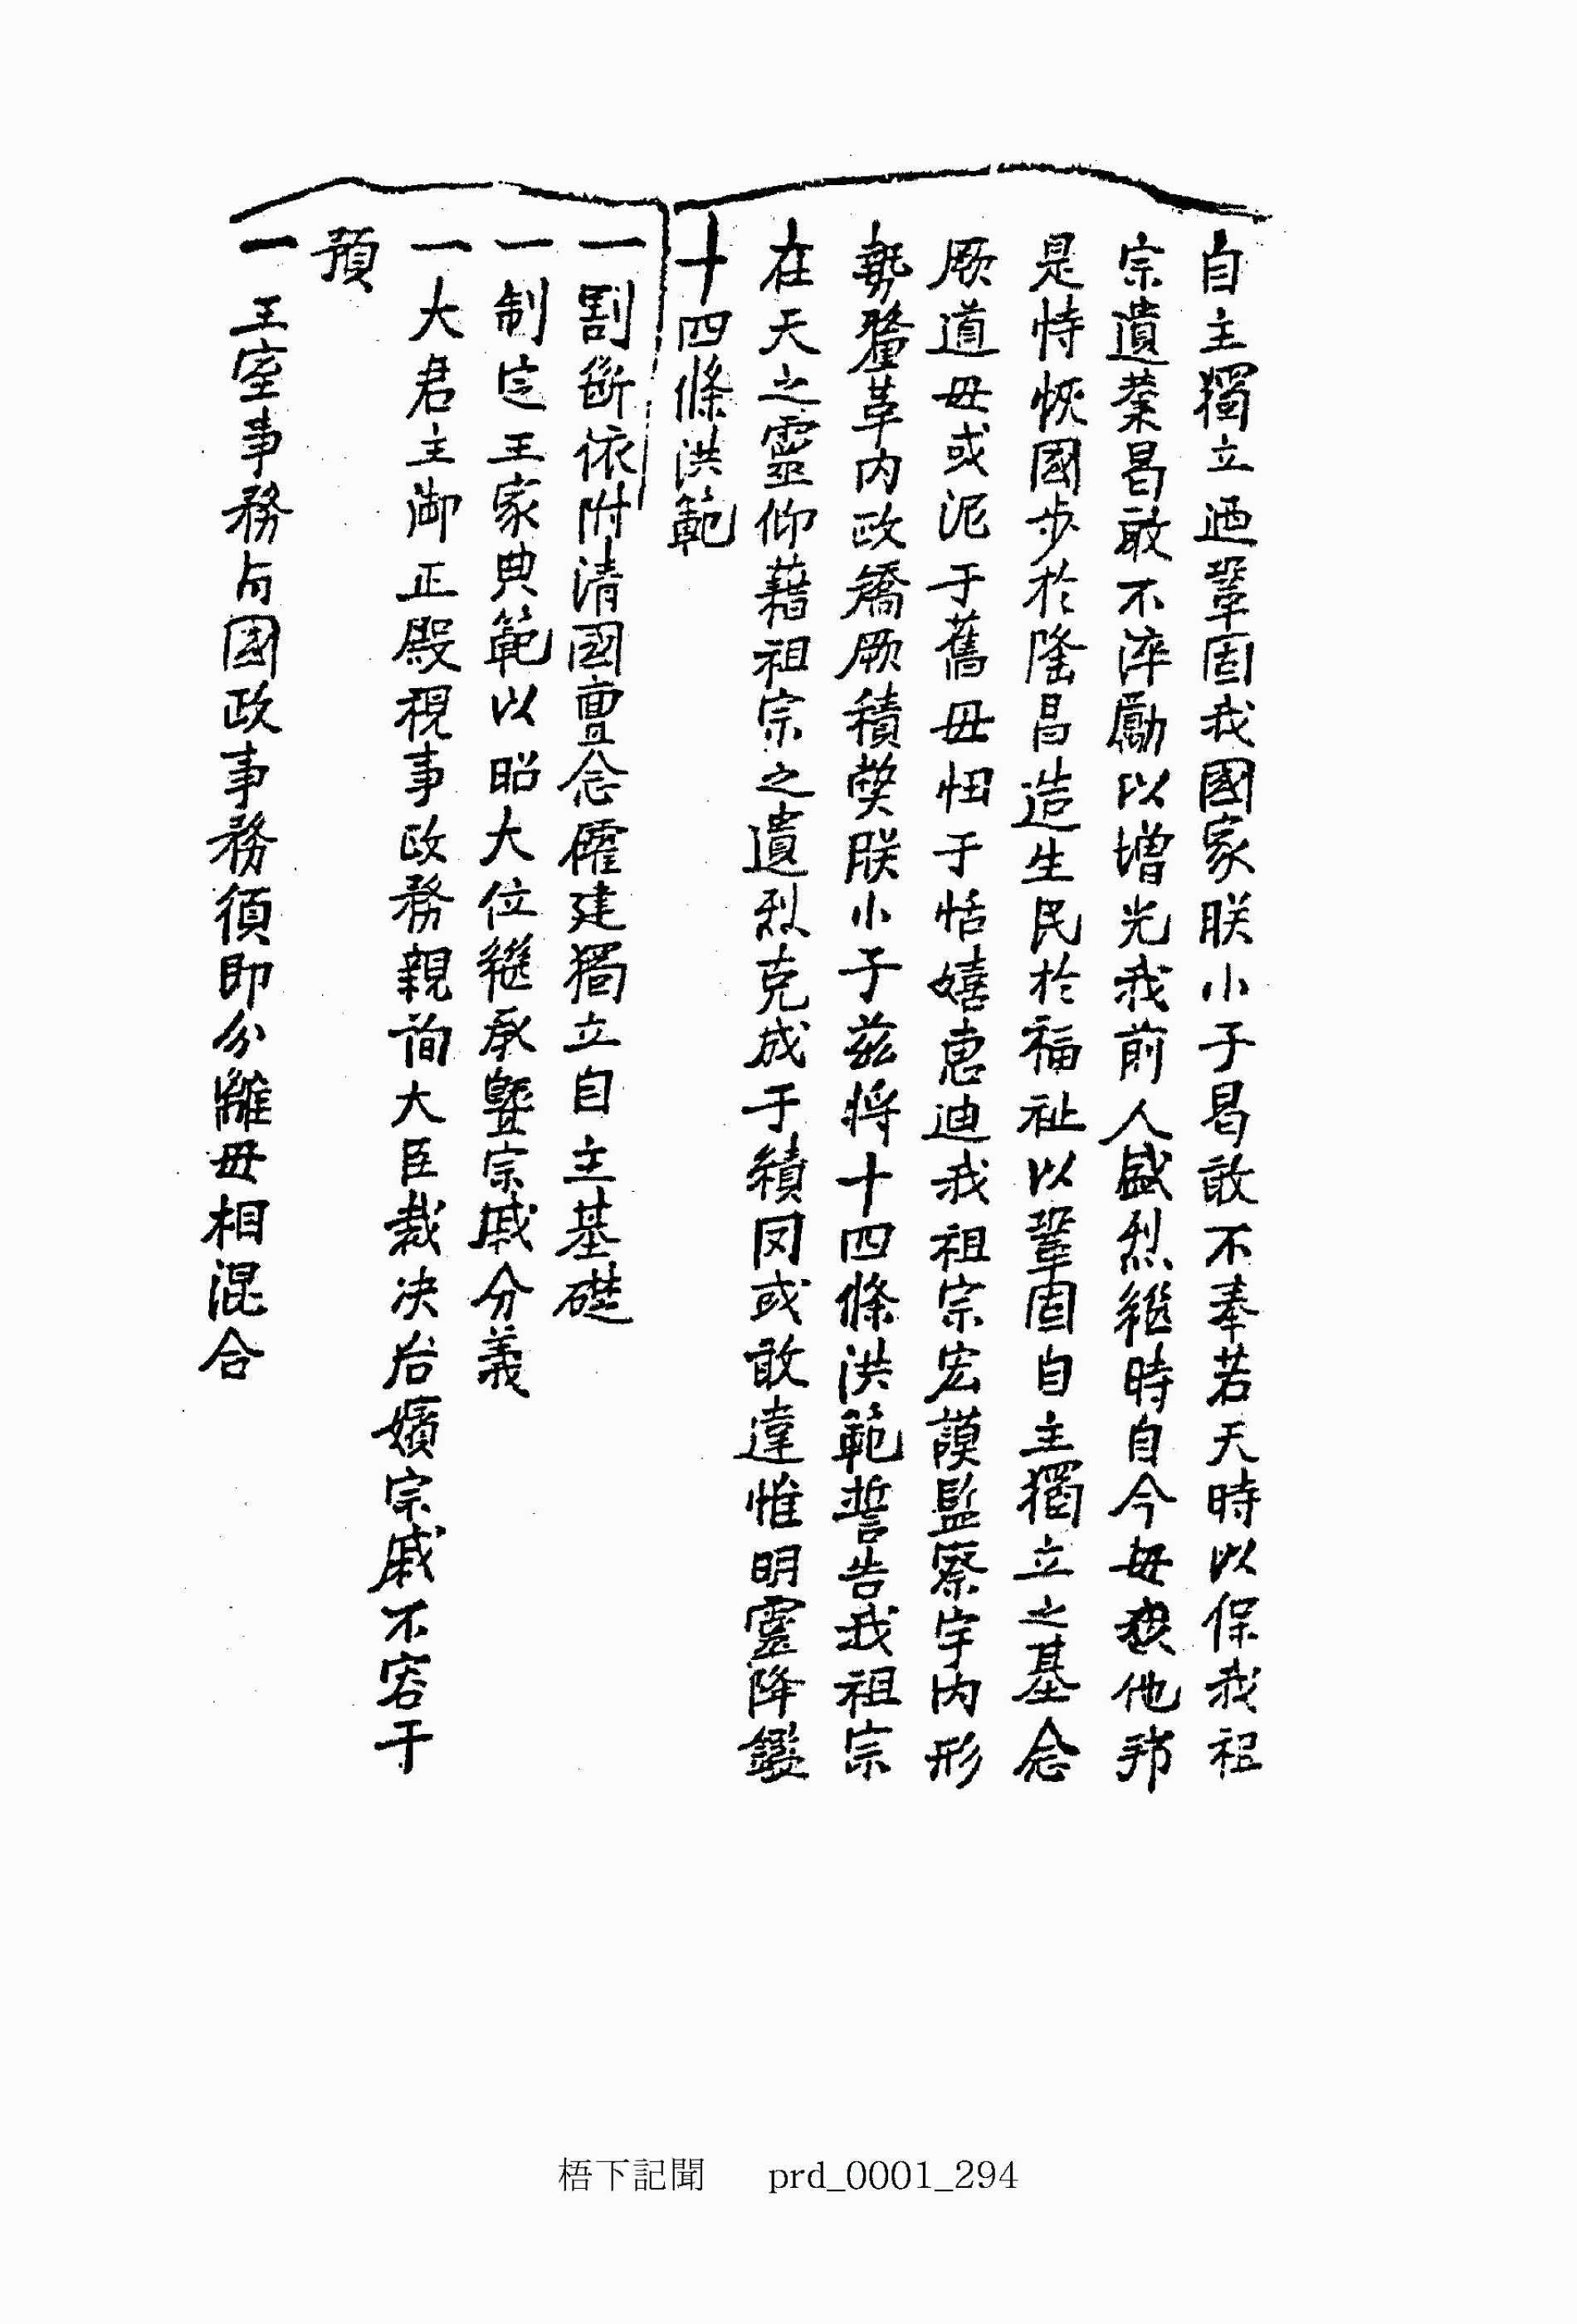 自主獨立迺鞏固我國家朕小子曷敢不奉若天時以保我祖
宗遺業曷敢不淬勵以增光我前人盛烈継時自今毋他邦
是恃恢國步於隆昌造生民於福祉以鞏固自主獨立之基念
厥道毋或泥于舊毋忸于恬嬉惠迪我祖宗宏謨監察宇內形
勢釐革內政矯厥積獘朕小子玆將十四條洪範誓告我祖宗
在天之靈仰藉祖宗之遺烈克成于績罔或敢違惟明靈降鑑
十四條洪範
一割斷依附清國亶念確建獨立自主基礎
一制定王家典範以昭大位継承曁宗戚分義
一大君主御正殿視事政務親詢大臣裁決后嬪宗戚不容干
預
一王室事務与國政事務須卽分離毋相混合
梧下記聞 prd_0001_294